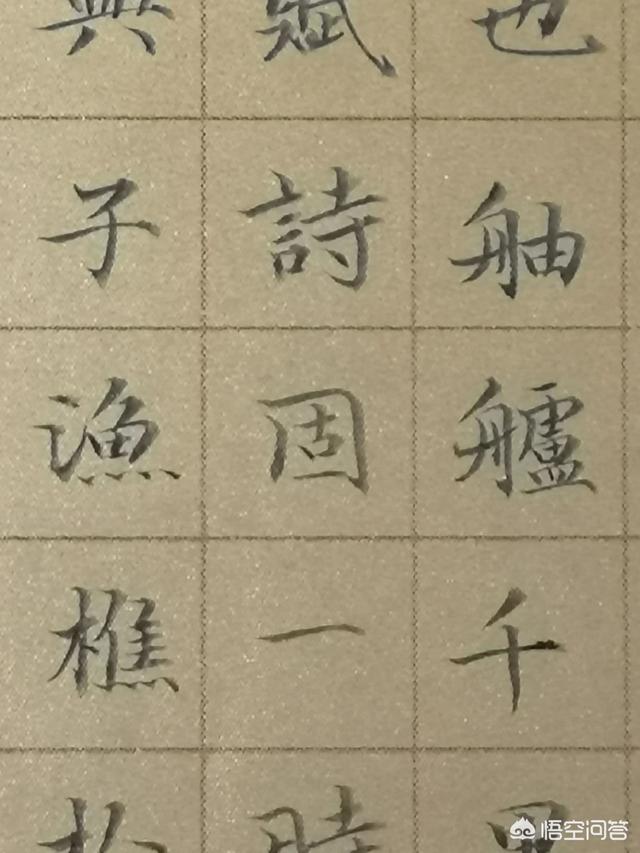 也舳艫千里
賦詩固一時
與子漁樵於
悟空问答